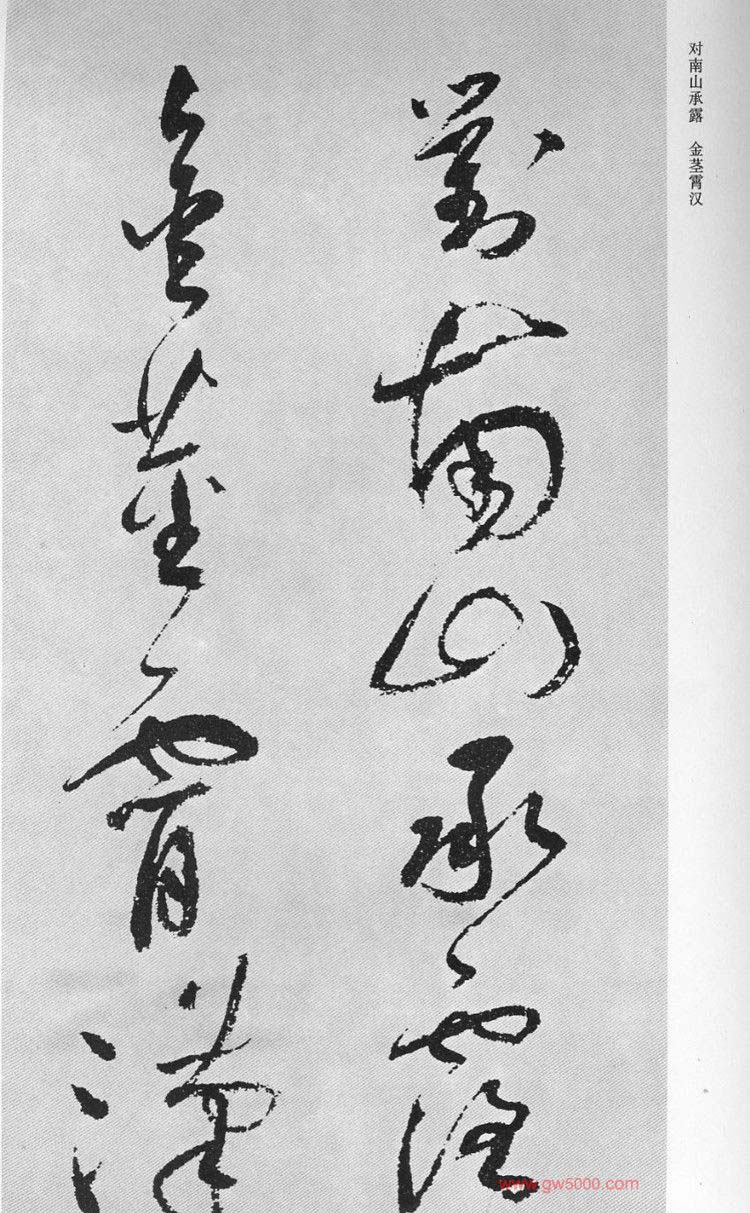 对南山承露 金茎霄汉
對南山承露
金莖霄漢
www.gw5000.com